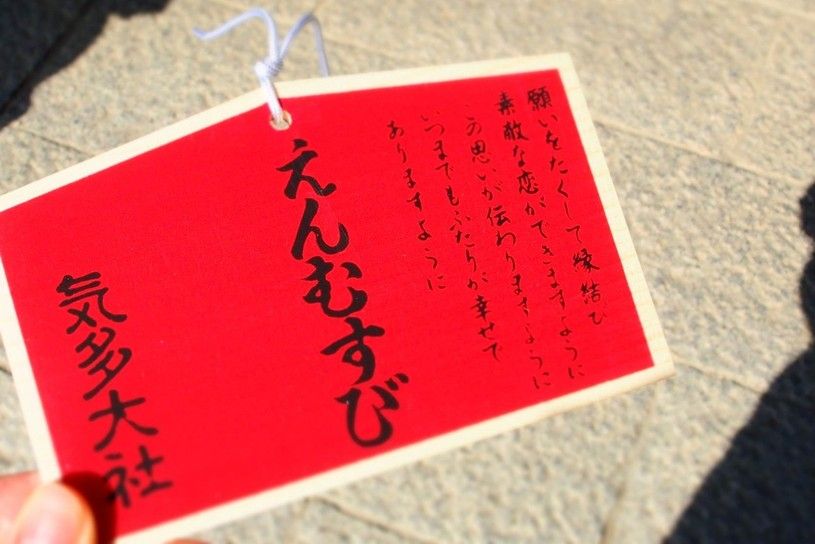 願いをたくして縁結び
素敵な恋ができますように
この思いが伝わりますように
いつまでもふたりが幸せで
ありますように
えんむすび
気多大社